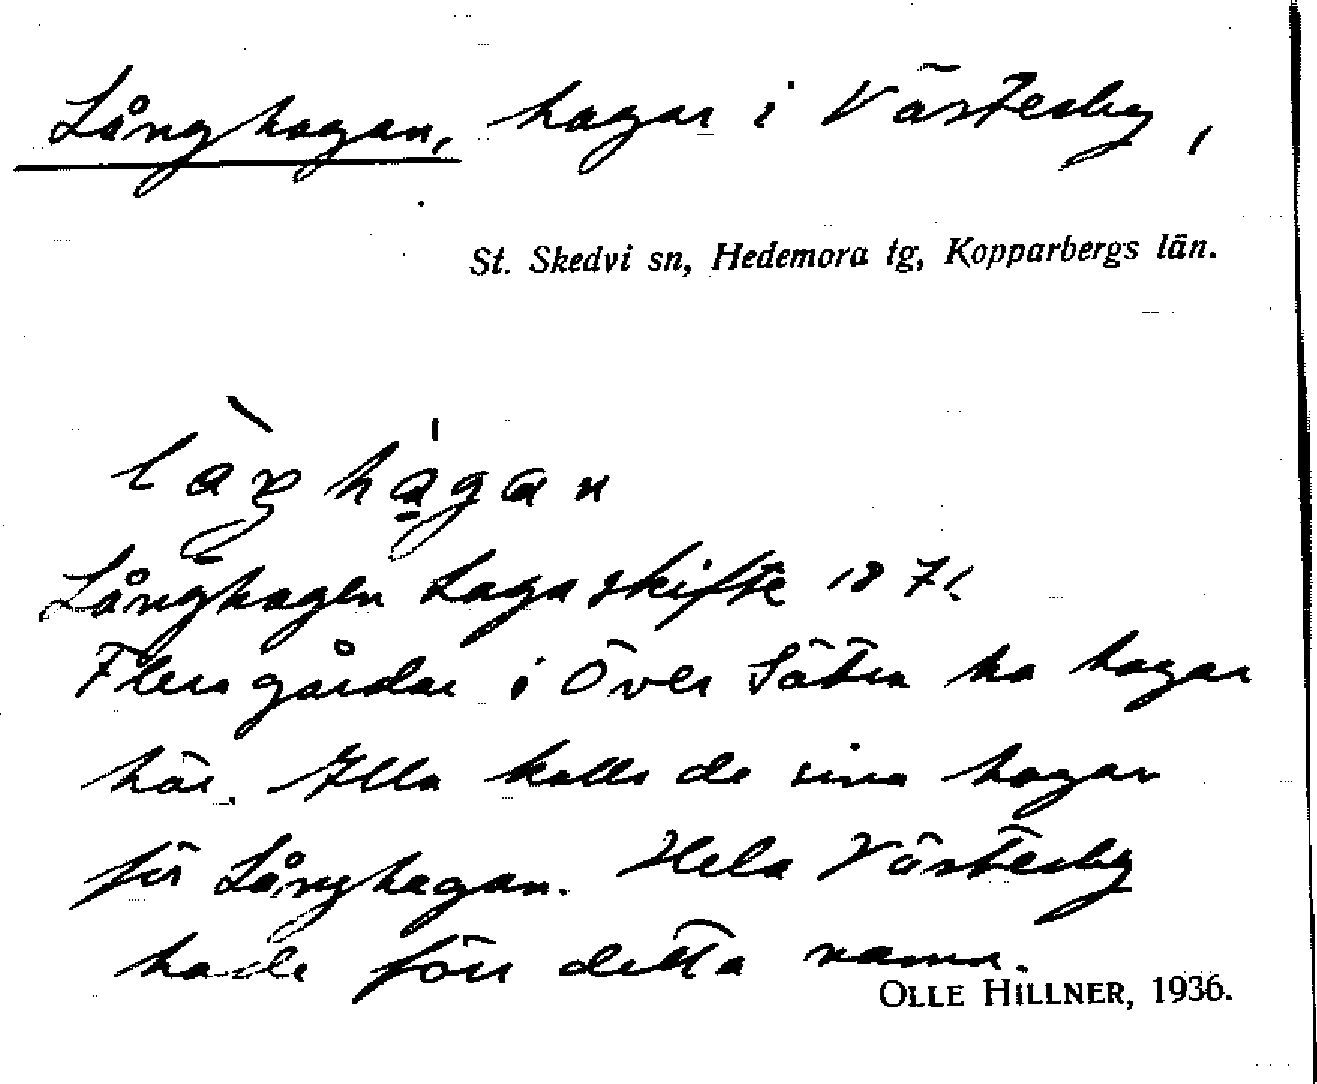 Långhagan, hagar i Västerby,
St. Skedvi sn, Hedemora tg, Kopparbergs län.
Långhagen Laga skifte 1871
Flera gårdar i Över Sätra ha hagar
här. Alla kalla de sina hagar
för Långhagan. Hela Västerby
hade förr detta namn.
OLLE HILLNER, 1936.